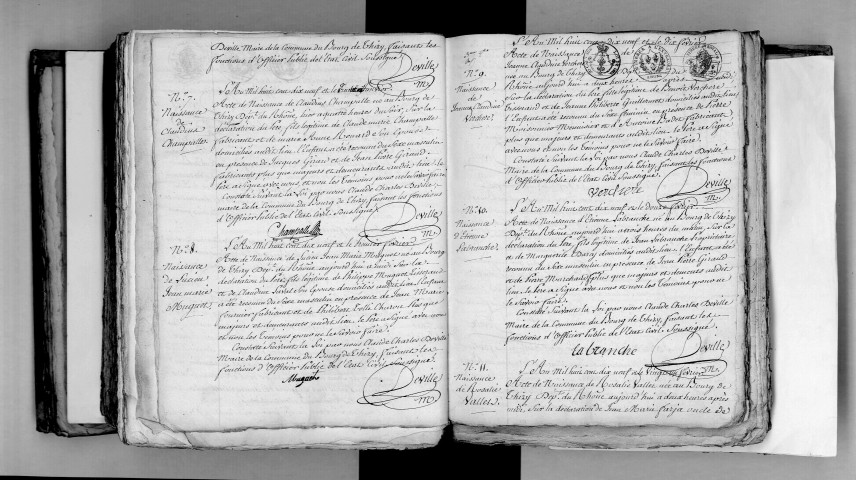 Deville Maire de la Commune du Bourg de Thizy, faisant les
fonctions d'Officier public de l'Etat Civil, Soussigné
Deville
M.
N.° 7.
Naissance
de
Claudius
Champalle
L'An Mil huit cent dix neuf et le
Acte de Naissance de Claudius Champalle né au Bourg de
Thizy Dep.t du Rhône, hier a quatre heures du Soir, Sur la
déclaration du Père fils légitime de Claude marie Champalle
fabricant et de marie Jeanne Renard Son Epouse
domiciliés audit lieu. L'enfant a été reconnu du Sexe masculin
en présence de Jacques Girard et de Jean Pierre Girard
fabricants plus que majeurs et demeurants audit lieu. le
père a Signé avec nous et non les témoins pour ne le Savoir faire
Constaté Suivant la Loi par nous Claude Charles Deville
maire de la Commune du Bourg de Thizy, faisant les fonctions
d'Officier public de l'Etat Civil, Soussigné
Champalle
Deville
M.
N.° 8.
Naissance
de Lucien
Jean marie
Muguet
L'An Mil huit cent dix neuf et le premier février
Acte de Naissance de Lucien Jean Marie Muguet né au Bourg
de Thizy Dep.t du Rhône, aujourd'hui a midi Sur la
déclaration du Père, fils légitime de Philippe Muguet
et de Claudine Son Epouse domiciliés audit lieu. L'enfant
a été reconnu du Sexe masculin en présence de Jean Marie
fabricant et de Philibert Plus que
majeurs et demeurants audit lieu. le Père a Signé avec nous
et non les témoins pour ne le Savoir faire
Constaté Suivant la Loi par nous Claude Charles Deville
Maire de la Commune du Bourg de Thizy, faisant les
fonctions d'Officier public de l'Etat Civil, Soussigné
Muguet
Deville
M.
N.° 9.
Naissance
de
Jeanne Claudine
Verchere
L'An Mil huit cent dix neuf et le dix février
Acte de Naissance
Jeanne Claudine Verchere
née au Bourg de Thizy Dep.t du
Rhône aujourd'hui a deux heures après midi
Sur la déclaration du Père fils légitime de Benoit Verchere
Tisserand et de Jeanne Philiberte Guillermet, domiciliés audit lieu
L'Enfant a été reconnu du Sexe féminin, en présence de Pierre
et d'Antoine fabricant,
plus que majeurs et domiciliés audit lieu. Le Père a Signé
avec nous et non les témoins pour ne le Savoir faire
Constaté Suivant la Loi par nous Claude Charles Deville
Maire de la Commune du Bourg de Thizy, faisant les fonctions
d'Officier public de l'Etat Civil Soussigné
verchere
Deville
M.
N.° 10.
Naissance
d'Etienne
Labranche
L'An Mil huit cent dix neuf et le douze février
Acte de Naissance d'Etienne Labranche né au Bourg de Thizy
Dep.t du Rhône aujourd'hui a trois heures du matin, Sur la
déclaration du Père, fils légitime de Jean Labranche
et de Marguerite domiciliés audit lieu. L'enfant a été
reconnu du Sexe masculin en présence de Jean Pierre Girard
et de Pierre plus que majeurs et demeurants audit
lieu. Le Père a Signé avec nous et non les témoins pour ne
le Savoir faire.
Constaté Suivant la Loi par nous Claude Charles Deville
Maire de la Commune du Bourg de Thizy, faisant les
fonctions d'Officier public de l'Etat Civil, Soussigné
labranche
Deville
M.
N.° 11.
Naissance
de Rosalie
Vallet
L'An Mil huit cent dix neuf et le Vingt février
Acte de Naissance de Rosalie Vallet née au Bourg de
Thizy Dep.t du Rhône aujourd'hui a deux heures après
midi, Sur la déclaration de Jean Marie farja oncle de